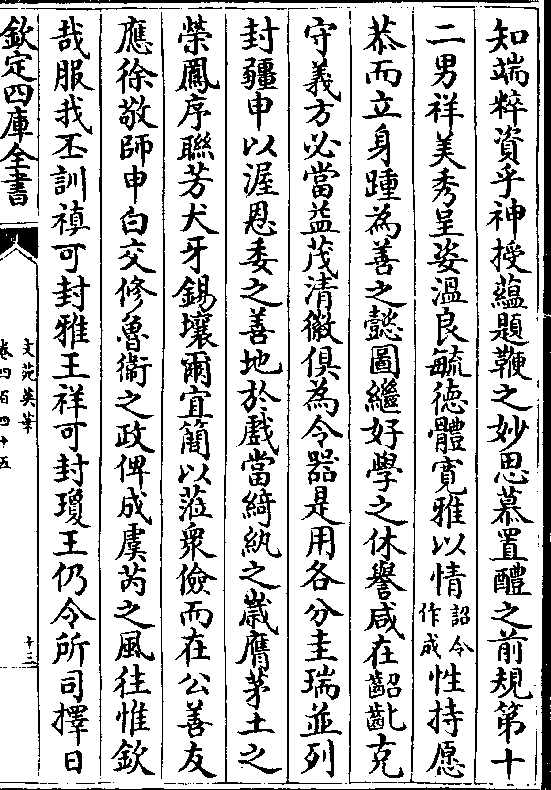 知端粹資乎神授蘊題鞭之妙思慕置醴之前規第十
二男祥美秀呈姿溫良毓德體寛雅以情詔令作成性持愿
恭而立身踵為善之懿圖繼好學之休譽咸在齠齔克
守義方必當益茂清徽俱為令器是用各分圭瑞並列
封疆申以渥恩委之善地於戲當綺紈之嵗膺茅土之
榮鳳序聯芳犬牙錫壤爾宜簡以蒞衆儉而在公善友
應徐敬師申白交修魯衞之政俾成虞芮之風往惟欽
哉服我丕訓禛可封雅王祥可封瓊王仍令所司擇日
欽定四庫全書
文苑英華
卷四百四十五
十三